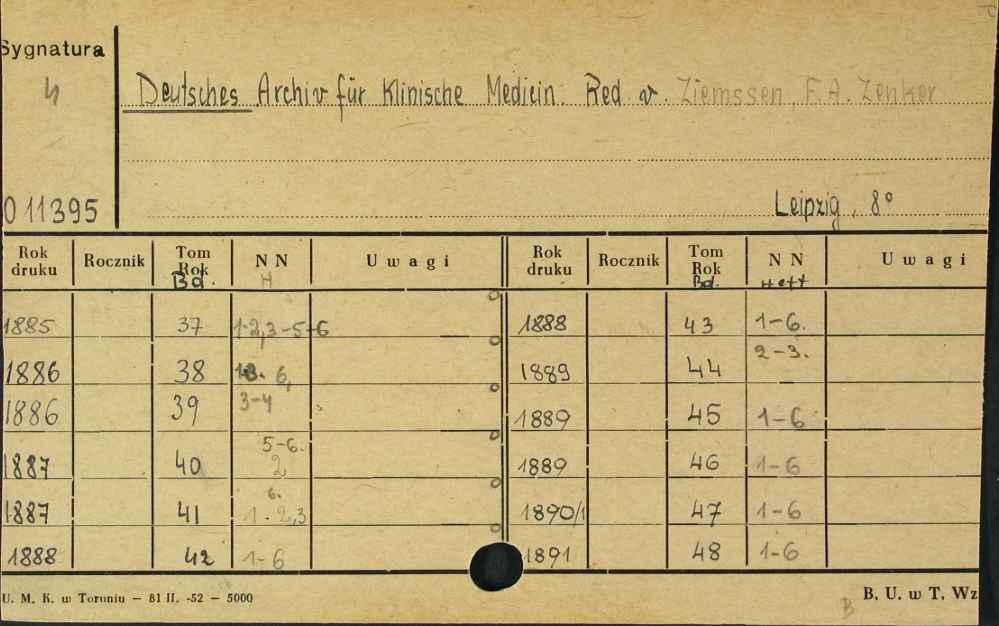 Sygnatura
4
Deutsches Archiv für Klinische Medicin. Red v. Ziemssen, F.A. Zenker
011395
Leipzig, 8°
Rok druku Rocznik Tom Rok Bd. N N H Uwagi Rok druku Rocznik Tom Rok Bd. N N Heft Uwagi
1885 37 1-2,3-5-6 1888 43 1-6.
1886 38 6, 1889 44 2-3.
1886 39 3-4 1889 45 1-6
1887 40 5-6. 2 1889 46 1-6
1887 41 6. 1-2,3 1890/1 47 1-6
1888 42 1-6 1891 48 1-6
U. M. K. w Toruniu — 81 II. -52 — 5000
B. U. w T. Wz
B